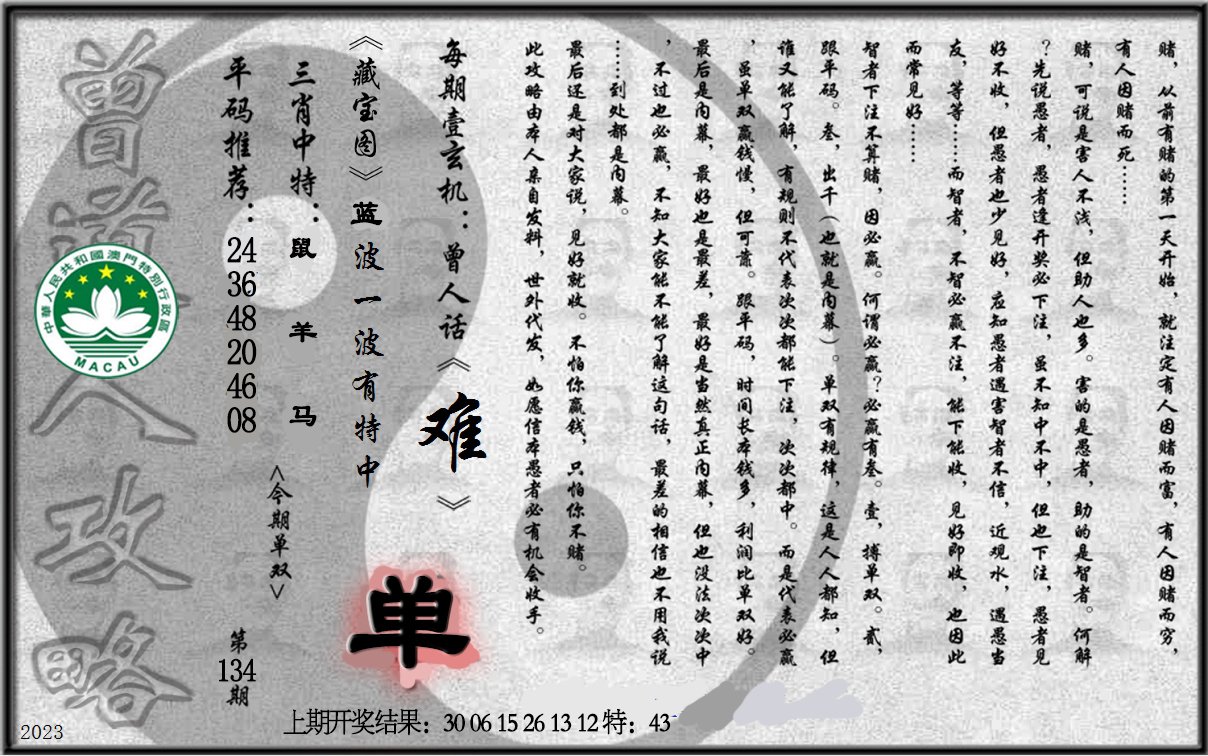 赌，从前有赌的第一天开始，就注定有人因赌而富，有人因赌而穷，
有人因赌而死……
赌，可说是害人不浅，但助人也多。害的是愚者，助的是智者。何解
？先说愚者，愚者逢开奖必下注，虽不知中不中，但也下注，愚者见
好不收，但愚者也少见好，应知愚者遇害智者不信，近观水，遇愚当
友，等等……而智者，不智必赢不注，能下能收，见好即收，也因此
而常见好……
智者下注不算赌，因必赢。何谓必赢？必赢有叁。壹，搏单双。贰，
跟平码。叁，出千（也就是内幕）。单双有规律，这是人人都知，但
谁又能了解，有规则不代表次次都能下注，次次都中。而是代表必赢
，虽单双赢钱慢，但可靠。跟平码，时间长本钱多，利润比单双好。
最后是内幕，最好也是最差，最好是当然真正内幕，但也没法次次中
，不过也必赢，不知大家能不能了解这句话，最差的相信也不用我说
……到处都是内幕。
最后还是对大家说，见好就收。不怕你赢钱，只怕你不赌。
此攻略由本人亲自发料，世外代发，如愿信本愚者必有机会收手。
每期壹玄机：曾人话《难》
《藏宝图》蓝波一波有特中
单
三肖中特：鼠 羊 马
<今期单双>
平码推荐：24 36 48 20 46 08
第134期
曾道人攻略
中華人民共和國澳門特別行政區
MACAU
上期开奖结果：30 06 15 26 13 12 特：43
2023